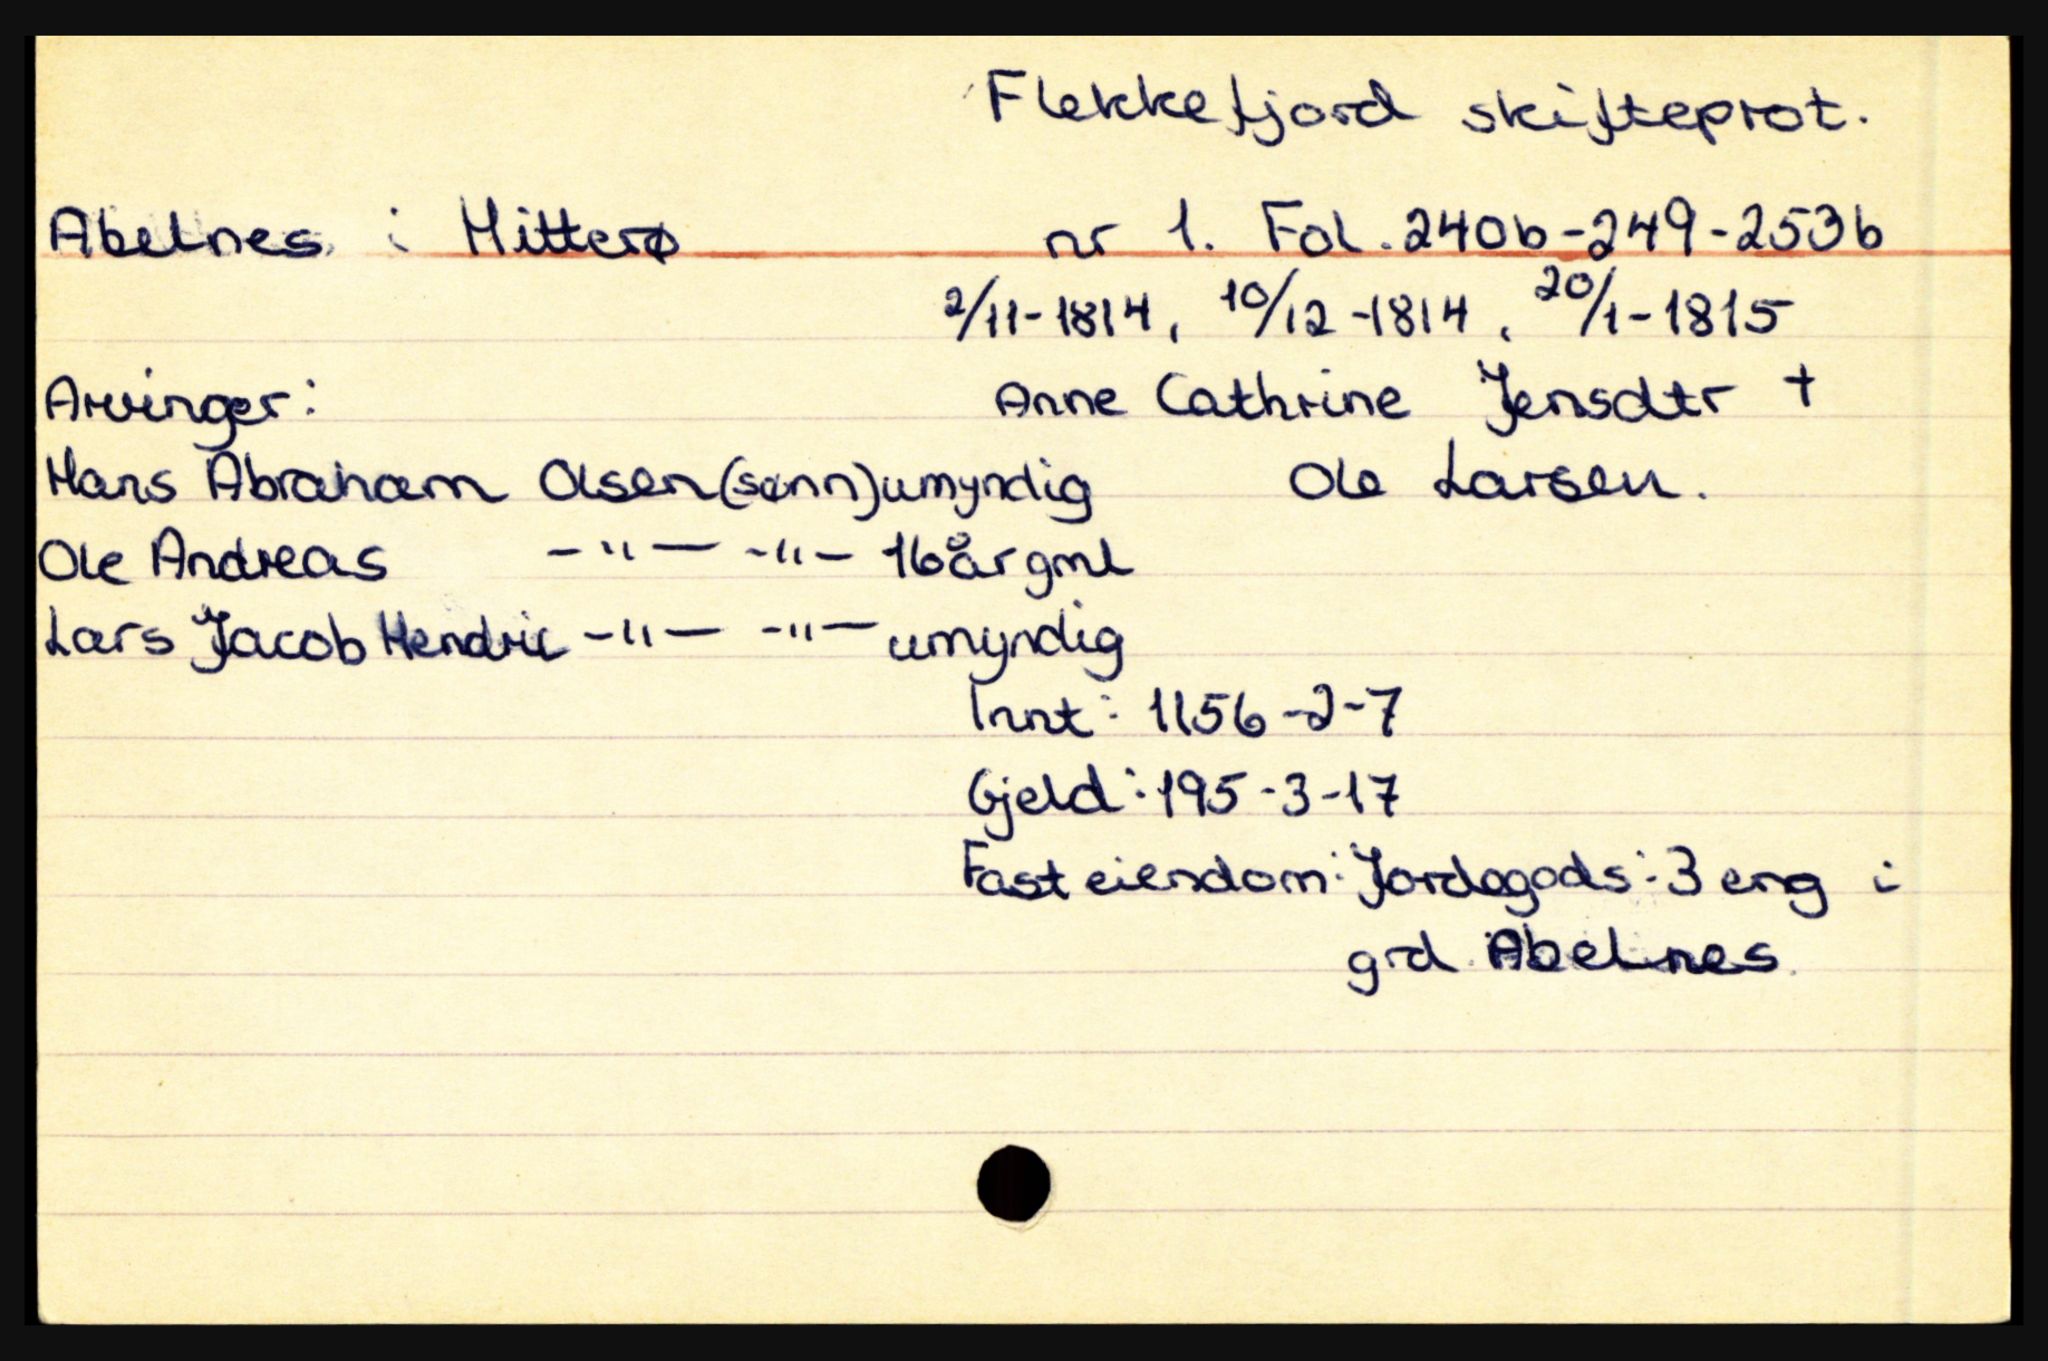 Flekkefjord skifteprot.
Abelnes i Hitterø nr 1. Fol. 240b-249-253b
2/11-1814, 10/12-1814, 20/1-1815
Arvinger: Anne Cathrine Jensdtr †
Hans Abraham Olsen (sønn) umyndig Ole Larsen.
Ole Andreas -"- -"- 16 år gml
Lars Jacob Hendric -"- -"- umyndig
Innt: 1156-2-7
Gjeld: 195-3-17
Fast eiendom: Jordegods: 3 eng i
grd. Abelnes